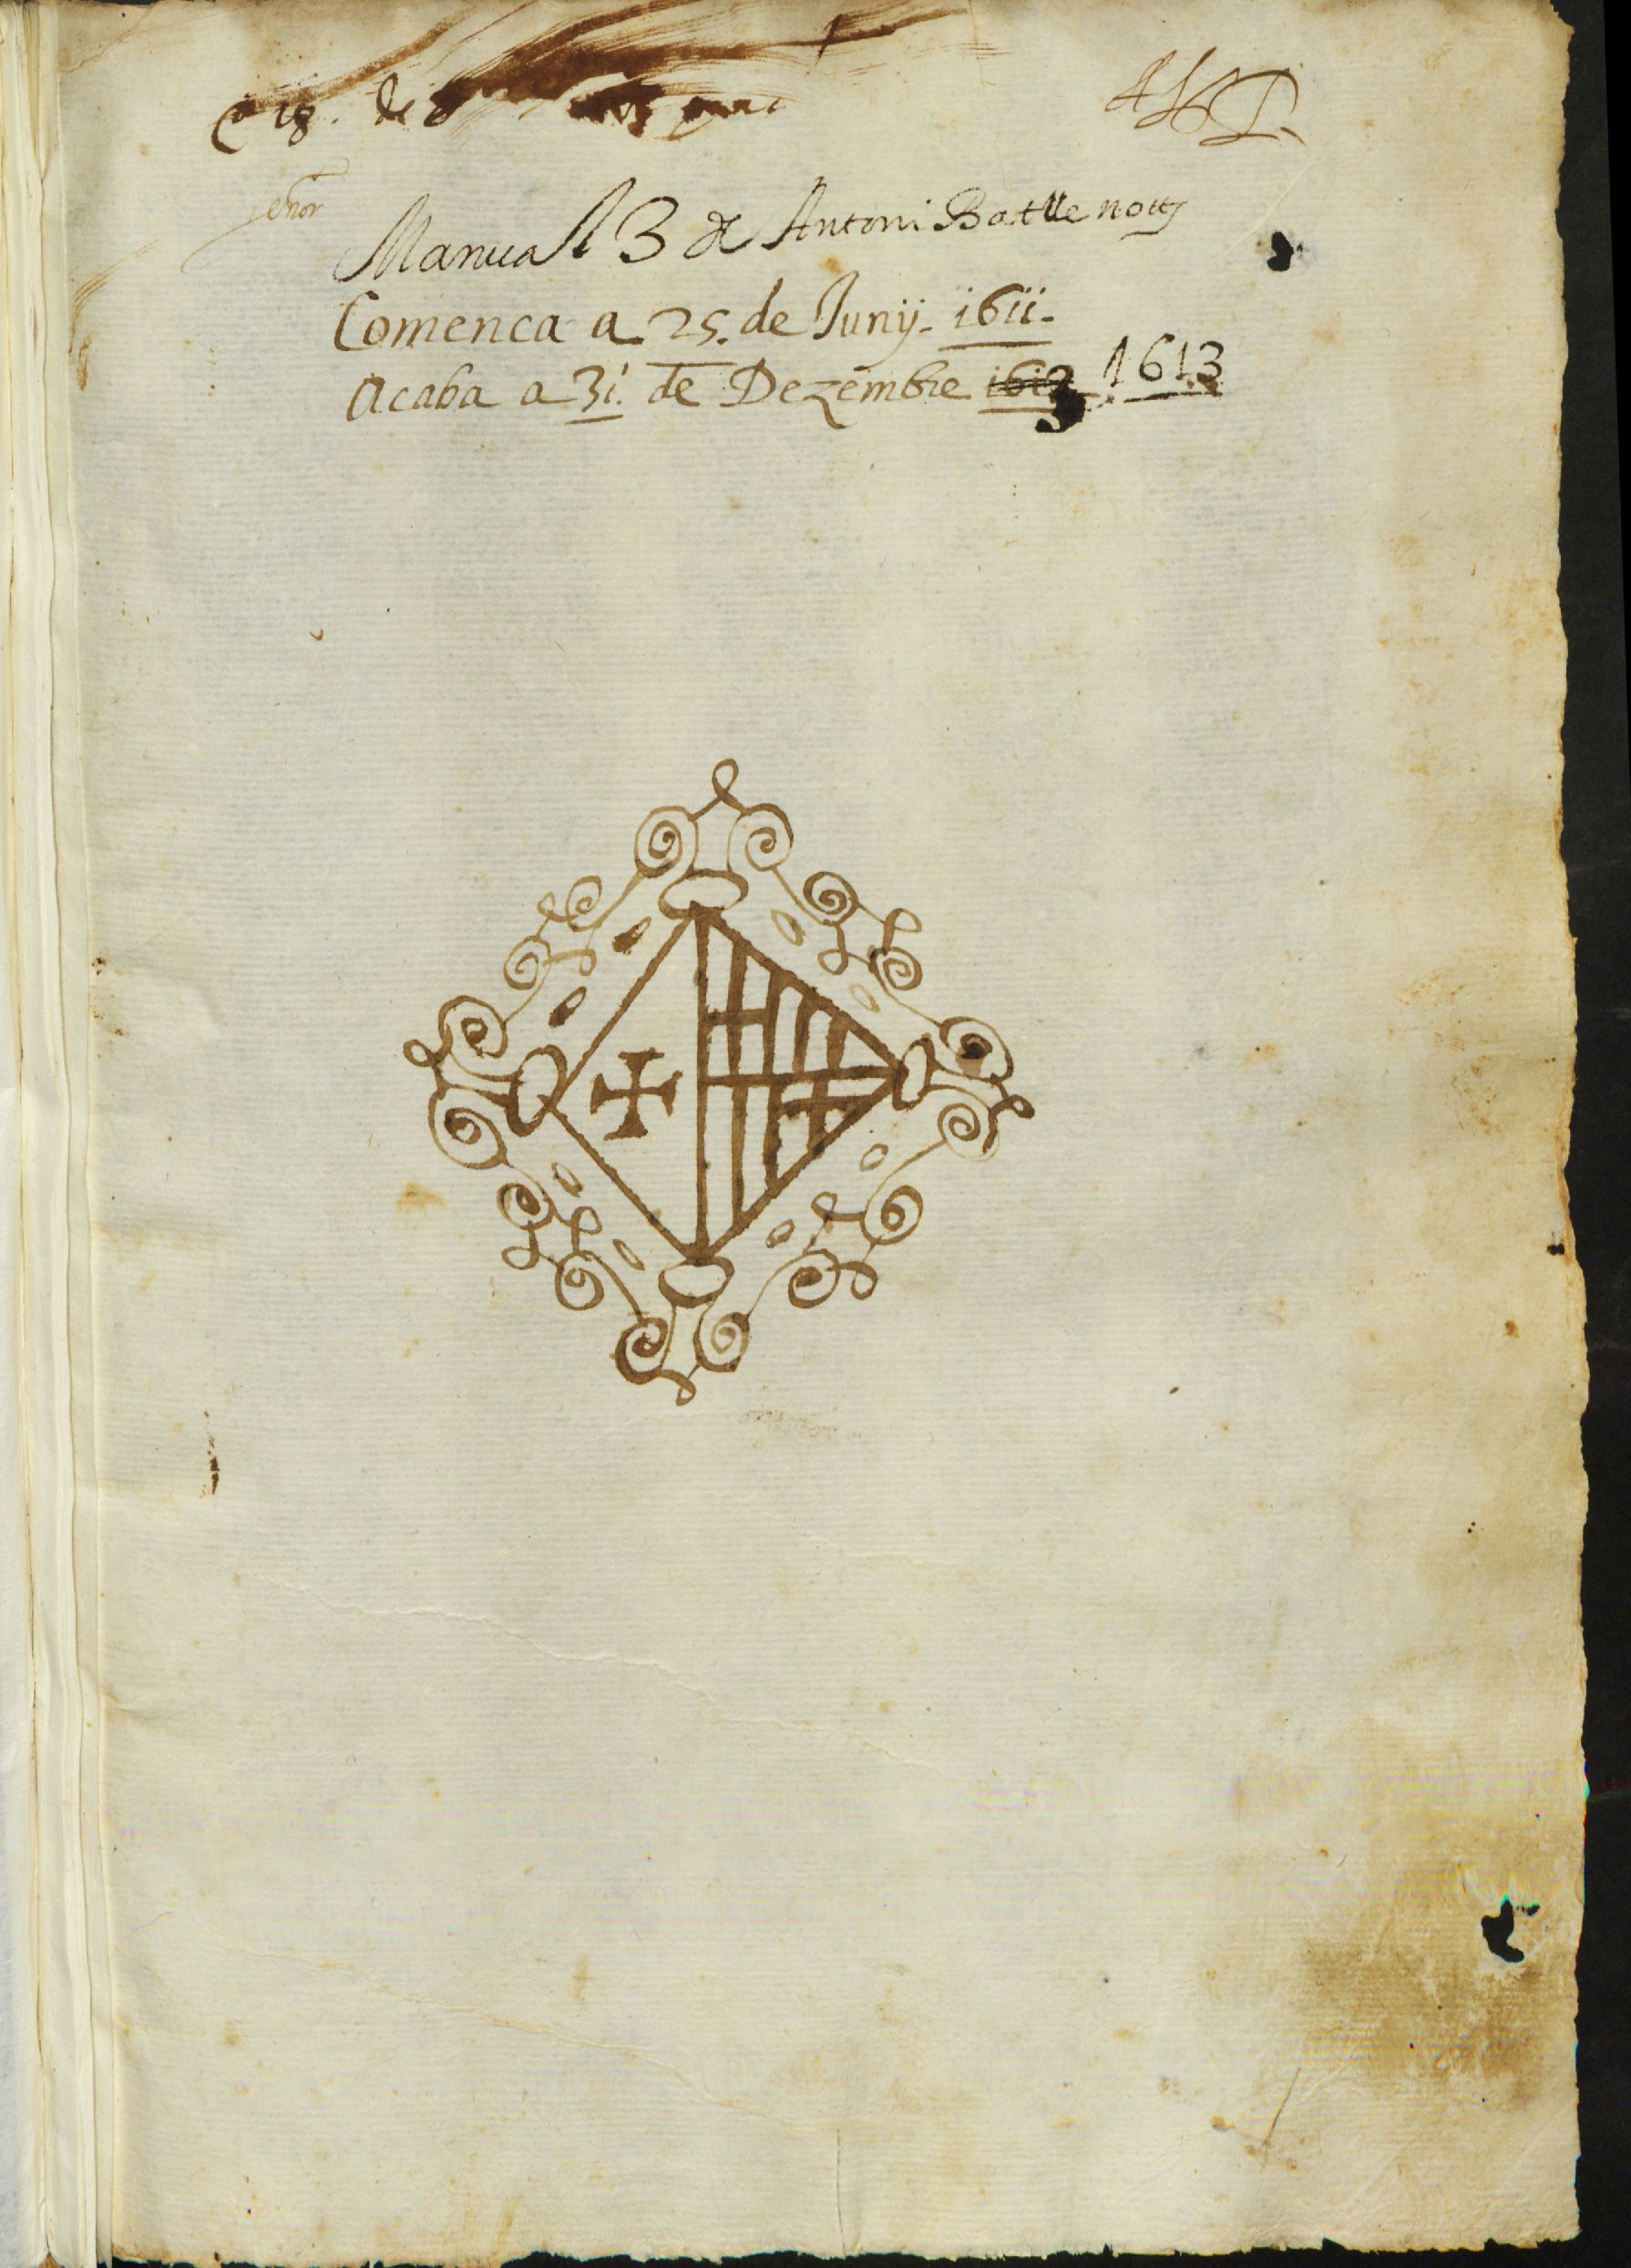 18. de
señor
Manual 3 de Antoni Batlle noty
Comenca a 25. de Juny. 1611.
Acaba a 31. de Dezembre 1612 1613